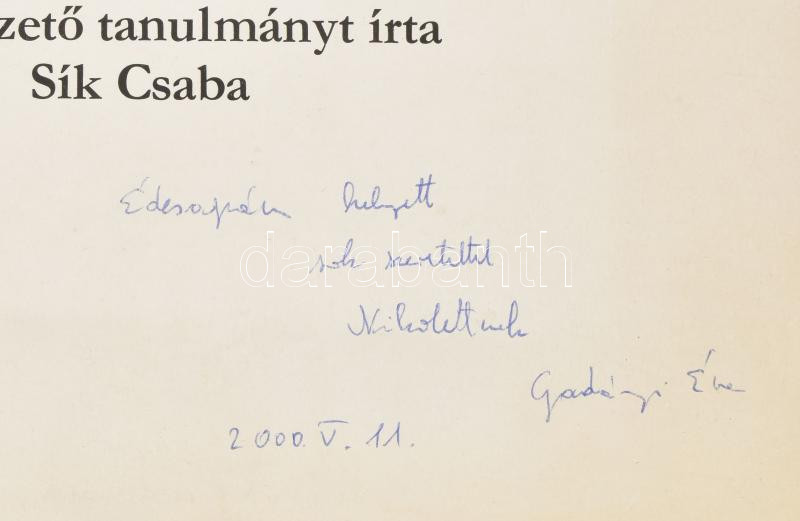 zető tanulmányt írta
Sík Csaba
Édesapám helyett
sok szeretettel
Nikolettnek
Gadányi Éva
2000. V. 11.
darabanth